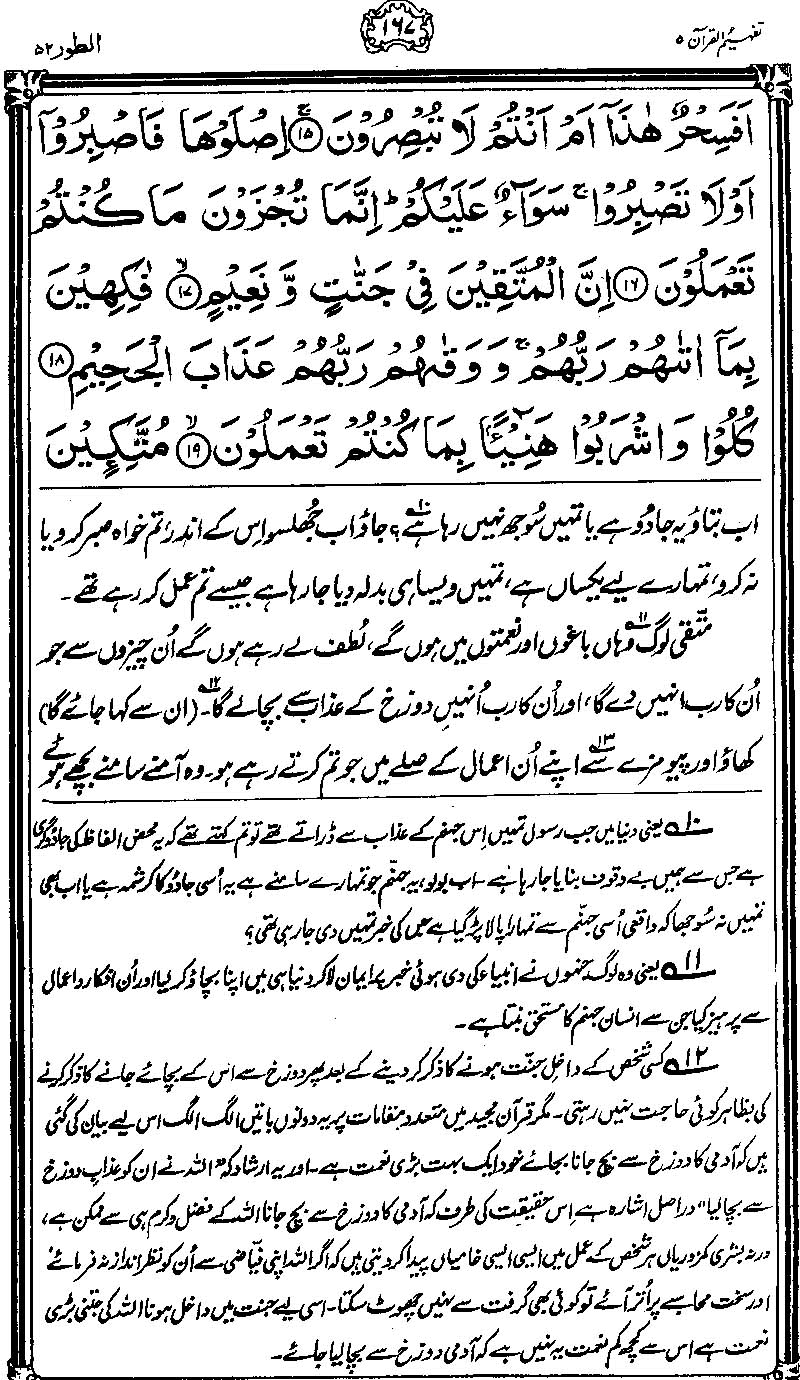 تفہیم القرآن ۵
۱۶۷
الطور ۵۲
اَفَسِحْرٌ هٰذَاۤ اَمْ اَنْتُمْ لَا تُبْصِرُوْنَ ۚ۝۱۵ اِصْلَوْهَا فَاصْبِرُوْۤا
اَوْ لَا تَصْبِرُوْا ۚ سَوَآءٌ عَلَیْكُمْ ؕ اِنَّمَا تُجْزَوْنَ مَا كُنْتُمْ
تَعْمَلُوْنَ ۝۱۶ اِنَّ الْمُتَّقِیْنَ فِیْ جَنّٰتٍ وَّ نَعِیْمٍ ۙ۝۱۷ فٰكِهِیْنَ
بِمَاۤ اٰتٰىهُمْ رَبُّهُمْ ۚ وَ وَقٰىهُمْ رَبُّهُمْ عَذَابَ الْجَحِیْمِ ۝۱۸
كُلُوْا وَ اشْرَبُوْا هَنِیْٓـًٔۢا بِمَا كُنْتُمْ تَعْمَلُوْنَ ۙ۝۱۹ مُتَّكِـِٕیْنَ
اب بتاؤ یہ جادُو ہے یا تمہیں سُوجھ نہیں رہا ہے؟۱۰ جاؤ اب جُھلسو اِس کے اندر، تم خواہ صبر کرو یا
نہ کرو، تمہارے لیے یکساں ہے، تمہیں ویسا ہی بدلہ دیا جا رہا ہے جیسے تم عمل کر رہے تھے۔
متّقی لوگ۱۱ وہاں باغوں اور نعمتوں میں ہوں گے، لُطف لے رہے ہوں گے اُن چیزوں سے جو
اُن کا رب انہیں دے گا، اور اُن کا رب اُنہیں دوزخ کے عذاب سے بچالے گا۔۱۲ (ان سے کہا جائے گا)
کھاؤ اور پیو مزے سے۱۳ اپنے اُن اعمال کے صلے میں جو تم کرتے رہے ہو۔ وہ آمنے سامنے بچھے ہوئے
۱۰ یعنی دنیا میں جب رسول تمہیں اِس جہنم کے عذاب سے ڈراتے تھے تو تم کہتے تھے کہ یہ محض الفاظ کی جادوگری
ہے جس سے ہمیں بے وقوف بنایا جا رہا ہے۔ اب بولو، یہ جہنّم جو تمہارے سامنے ہے یہ اُسی جادُو کا کرشمہ ہے یا اب بھی
تمہیں نہ سُوجھا کہ واقعی اُسی جہنّم سے تمہارا پالا پڑ گیا ہے جس کی خبر تمہیں دی جا رہی تھی؟
۱۱ یعنی وہ لوگ جنہوں نے انبیاء کی دی ہوئی خبر پر ایمان لا کر دنیا ہی میں اپنا بچاؤ کر لیا اور اُن افکار و اعمال
سے پرہیز کیا جن سے انسان جہنم کا مستحق بنتا ہے۔
۱۲ کسی شخص کے داخلِ جنّت ہونے کا ذکر کر دینے کے بعد پھر دوزخ سے اس کے بچائے جانے کا ذکر کرنے
کی بظاہر کوئی حاجت نہیں رہتی۔ مگر قرآن مجید میں متعدد مقامات پر یہ دونوں باتیں الگ الگ اس لیے بیان کی گئی
ہیں کہ آدمی کا دوزخ سے بچ جانا بجائے خود ایک بہت بڑی نعمت ہے۔ اور یہ ارشاد کہ "اللہ نے ان کو عذابِ دوزخ
سے بچا لیا" دراصل اشارہ ہے اِس حقیقت کی طرف کہ آدمی کا دوزخ سے بچ جانا اللہ کے فضل و کرم ہی سے ممکن ہے،
ورنہ بشری کمزوریاں ہر شخص کے عمل میں ایسی ایسی خامیاں پیدا کر دیتی ہیں کہ اگر اللہ اپنی فیّاضی سے اُن کو نظر انداز نہ فرمائے
اور سخت محاسبے پر اُتر آئے تو کوئی بھی گرفت سے نہیں چھوٹ سکتا۔ اسی لیے جنت میں داخل ہونا اللہ کی جتنی بڑی
نعمت ہے اس سے کچھ کم نعمت یہ نہیں ہے کہ آدمی دوزخ سے بچا لیا جائے۔